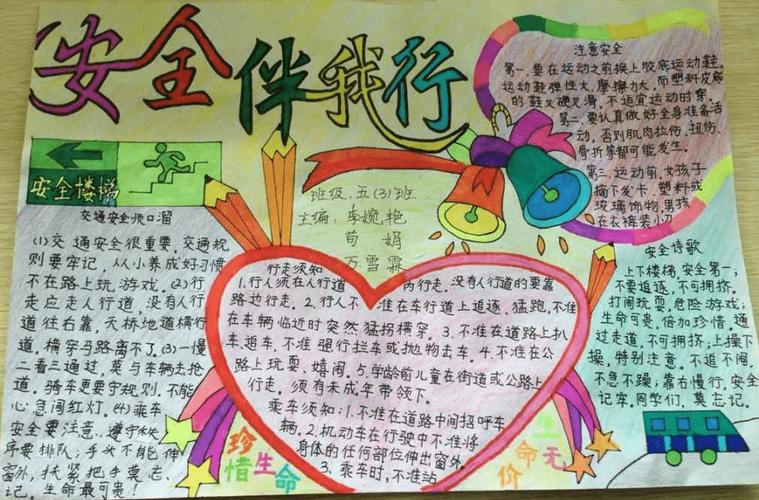 安全伴我行
安全楼梯
班级:五(3)班
主编:李婉艳
荀娟
万雪霖
注意安全
第一.要在运动之前换上胶底运动鞋。
运动鞋弹性大,摩擦力大,而塑料皮底
的鞋又硬又滑,不适宜运动时穿。
第二.要认真做好全身准备活
动,否则肌肉拉伤、扭伤、
骨折等都可能发生。
第三.运动前,女孩子
摘下发卡.塑料或
玻璃饰物,男孩
在衣裤装小刀
交通安全顺口溜
(1)交通安全很重要,交通规
则要牢记,从小养成好习惯
不在路上玩游戏。(2)行
走应走人行道,没有人行
道往右靠,天桥地道横行
道,横穿马路离不了。(3)一慢
二看三通过,莫与车辆去抢
道。骑车更要守规则,不能
心急闯红灯。(4)乘车
安全要注意,遵守秩
序要排队;手头不能伸
窗外,扶紧把手莫忘
记,生命最可贵!
行走须知
1.行人须在人行道内行走,没有人行道的要靠
路边行走。2.行人不准在车行道上追逐、猛跑,不准
在车辆临近时突然猛拐横穿。3.不准在道路上扒
车、追车,不准强行拦车或抛物击车。4.不准在公
路上玩耍、嬉闹。5.学龄前儿童在街道或公路上
行走,须有未成年带领下。
乘车须知:1.不准在道路中间招呼车
辆。2.机动车在行驶中不准将
身体的任何部位伸出窗外。
3.乘车时,不准站
安全诗歌
上下楼梯,安全第一;
不要追逐,不可拥挤。
打闹玩耍,危险游戏;
生命可贵,倍加珍惜。通
过走道,不可拥挤;上操下
操,特别注意。不追不闹,
不急不躁;靠右慢行,安全
记牢。同学们,莫忘记。
珍惜生命
生命无价